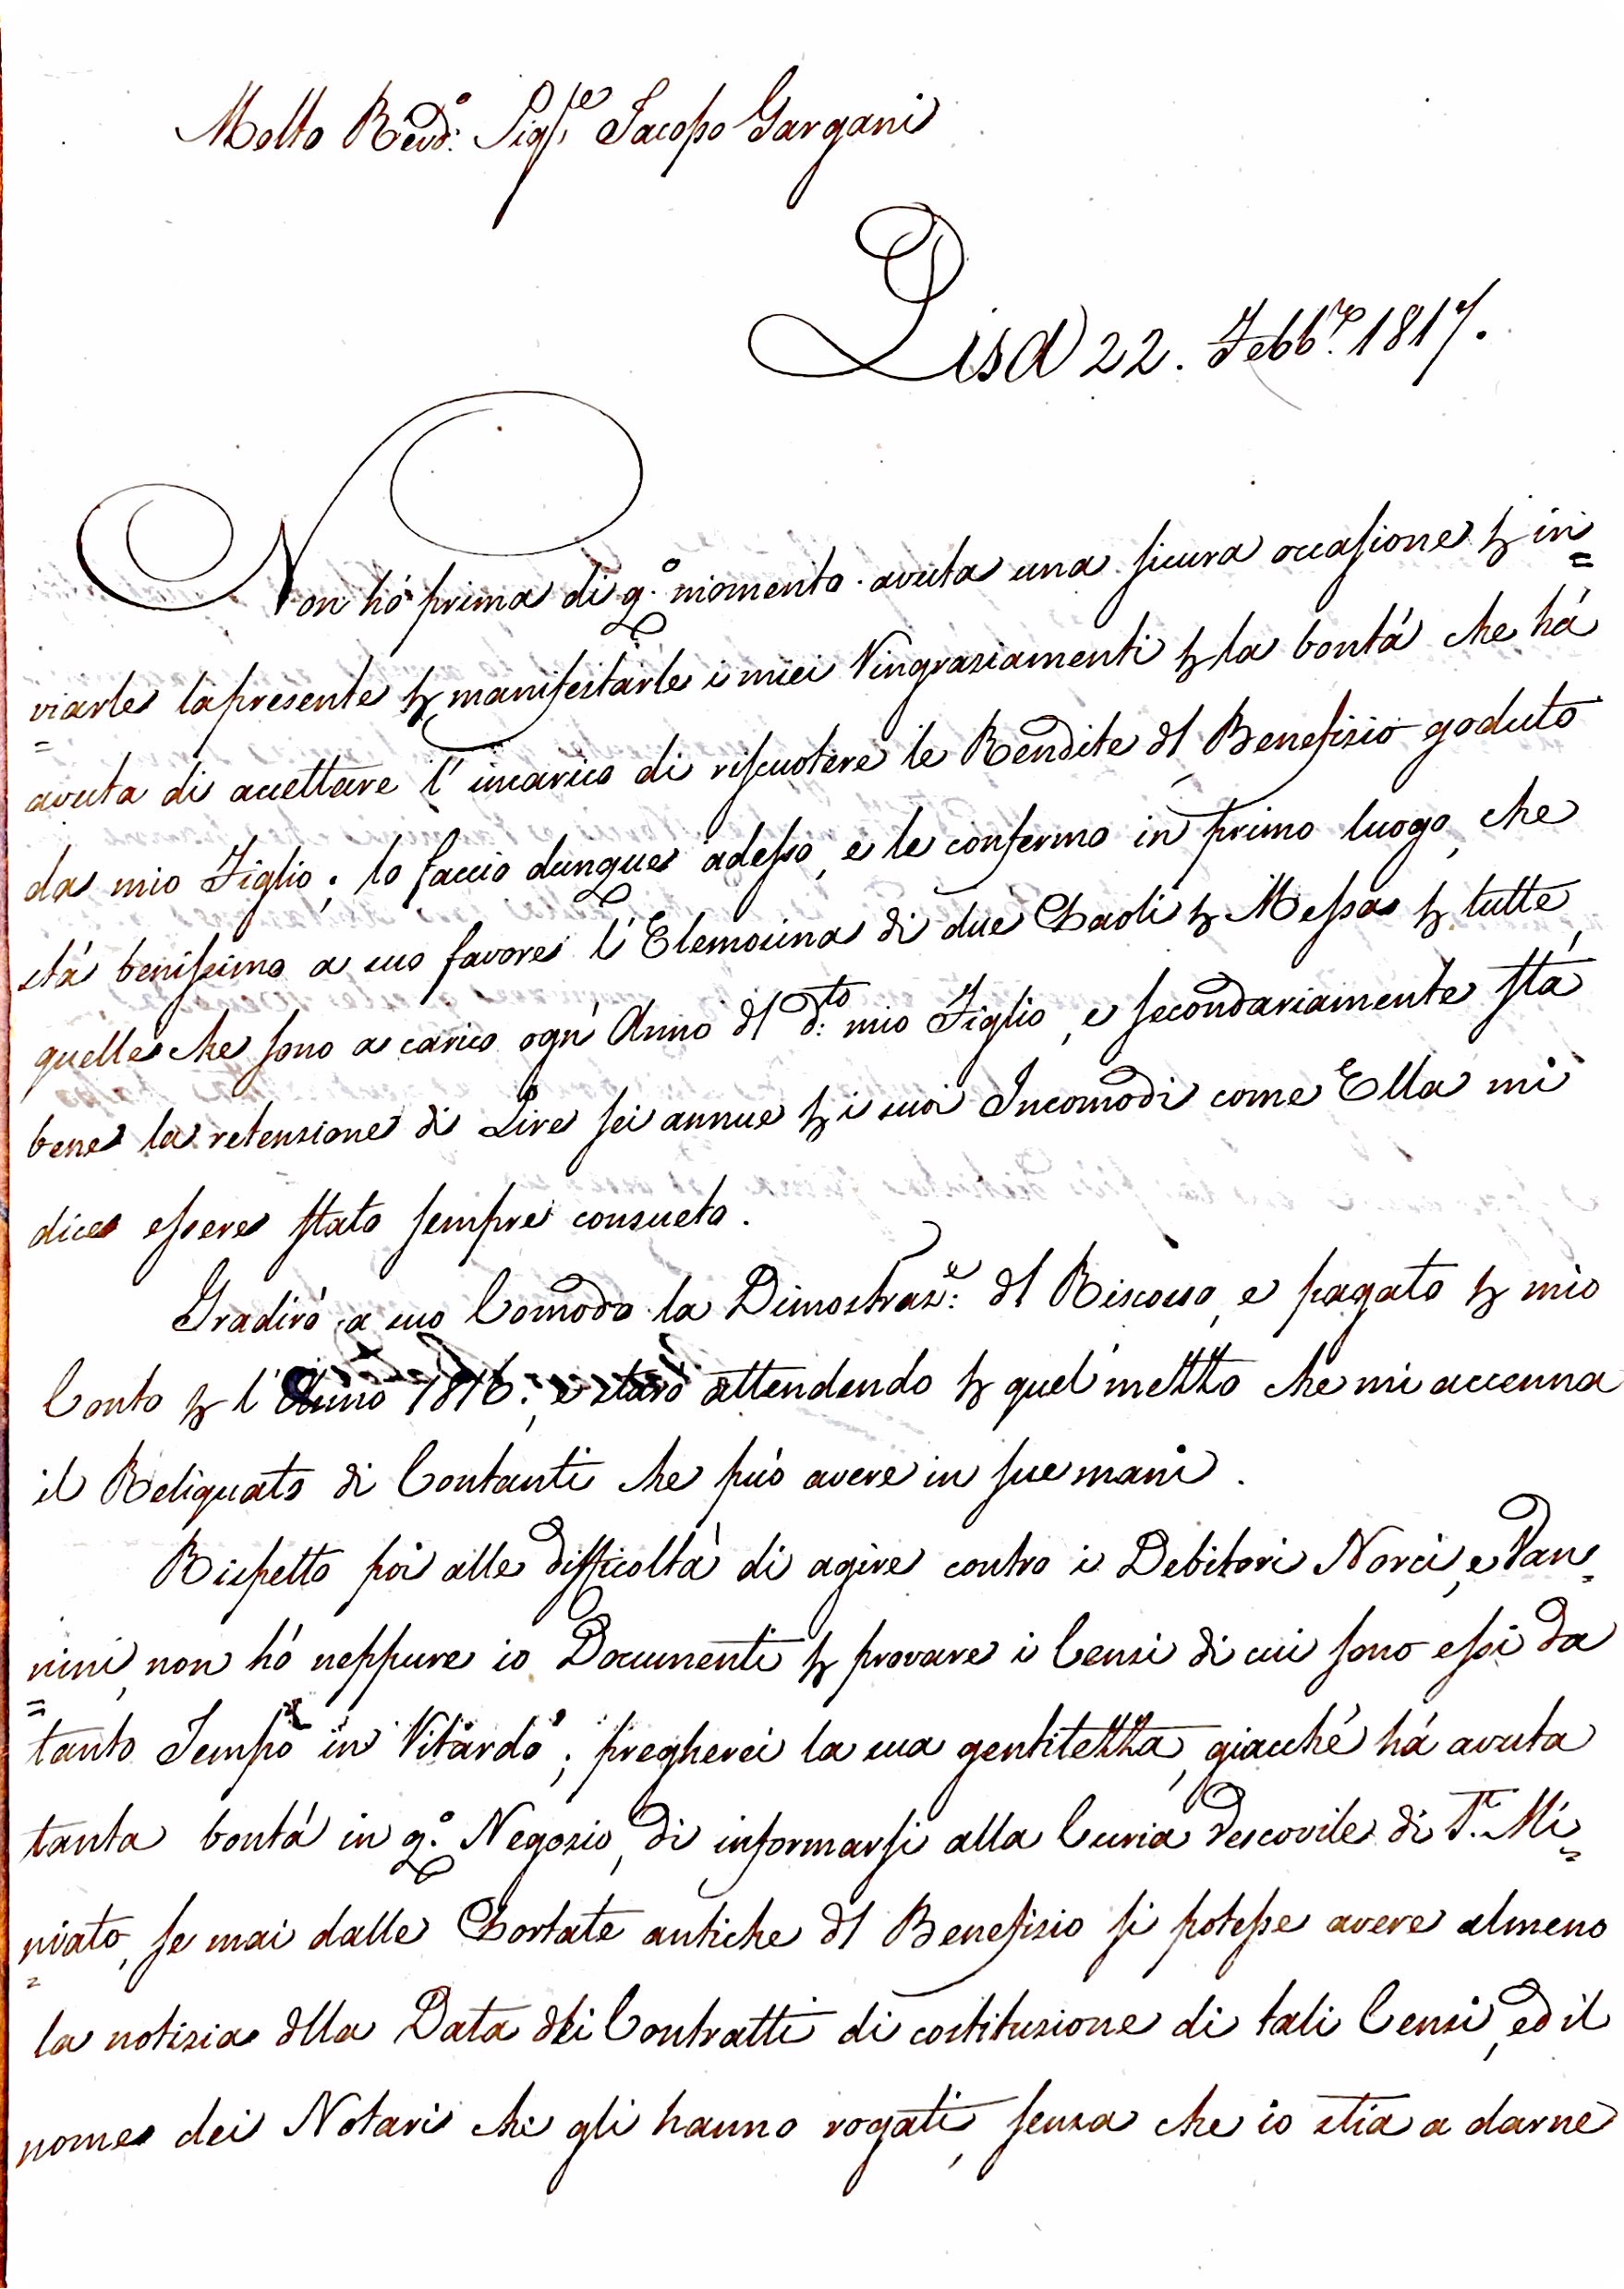 Molto Revd:° Sig:re Jacopo Gargani
Pisa 22. Febb:re 1817.
Non hò prima di q:° momento avuta una sicura occasione p in=
=viarle la presente p manifestarle i miei ringraziamenti p la bontà che hà
avuta di accettare l'incarico di riscuotere le Rendite dl Benefizio goduto
da mio Figlio; lo faccio dunque adesso, e le confermo in primo luogo, che
stà benissimo a suo favore l'Elemosina di due Paoli p Messa p tutte
quelle che sono a carico ogn' Anno dl d:to mio Figlio, e secondariamente stà
bene la retenzione di Lire sei annue p i suoi Incomodi come Ella mi
dice essere stato sempre consueto.
Gradirò a suo Comodo la Dimostraz:e dl Riscosso, e pagato p mio
Conto p l'Anno 1816.; e starò attendendo p quel mezzo che mi accenna
il Reliquato di Contanti che può avere in sue mani.
Rispetto poi alle difficoltà di agire contro i Debitori Norci, e Van=
=nini, non hò neppure io Documenti p provare i Censi di cui sono essi da
tanto Tempo in Ritardo; pregherei la sua gentilezza, giacchè hà avuta
tanta bontà in q:° Negozio, di informarsi alla Curia Vescovile di S. Mi=
=niato, se mai dalle Portate antiche dl Benefizio si potesse avere almeno
la notizia dlla Data dei Contratti di costituzione di tali Censi, ed il
nome dei Notari che gli hanno rogati, senza che io stia a darne